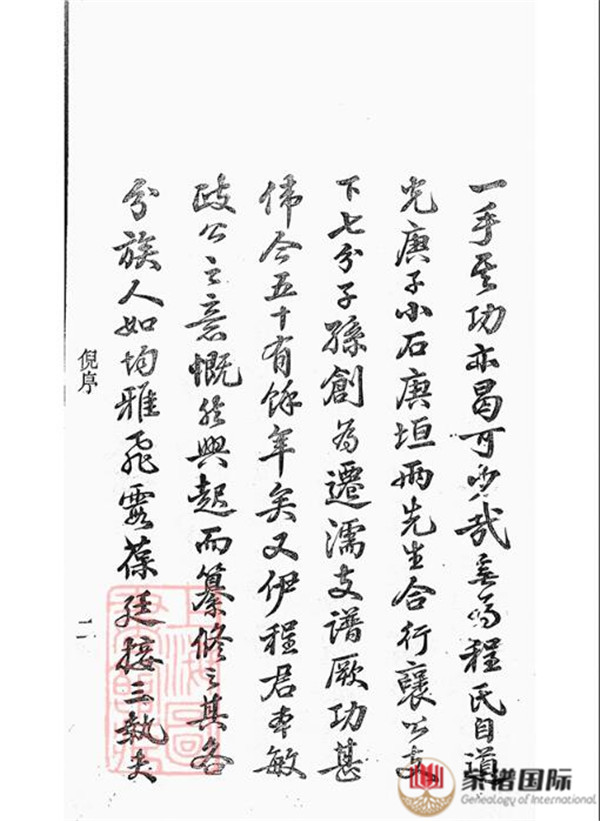 一手其功亦曷可少哉嘉爲程氏自道
光庚子小石庚垣兩先生合行襄公支
下七分子孫創為遷濡支譜厥功甚
偉今五十有餘年矣又伊程君本敏
跂公之意慨然興起而纂修之其各
分族人如均雅飛霞葆廷接三執夫
倪序
二
家谱国际
Genealogy of International